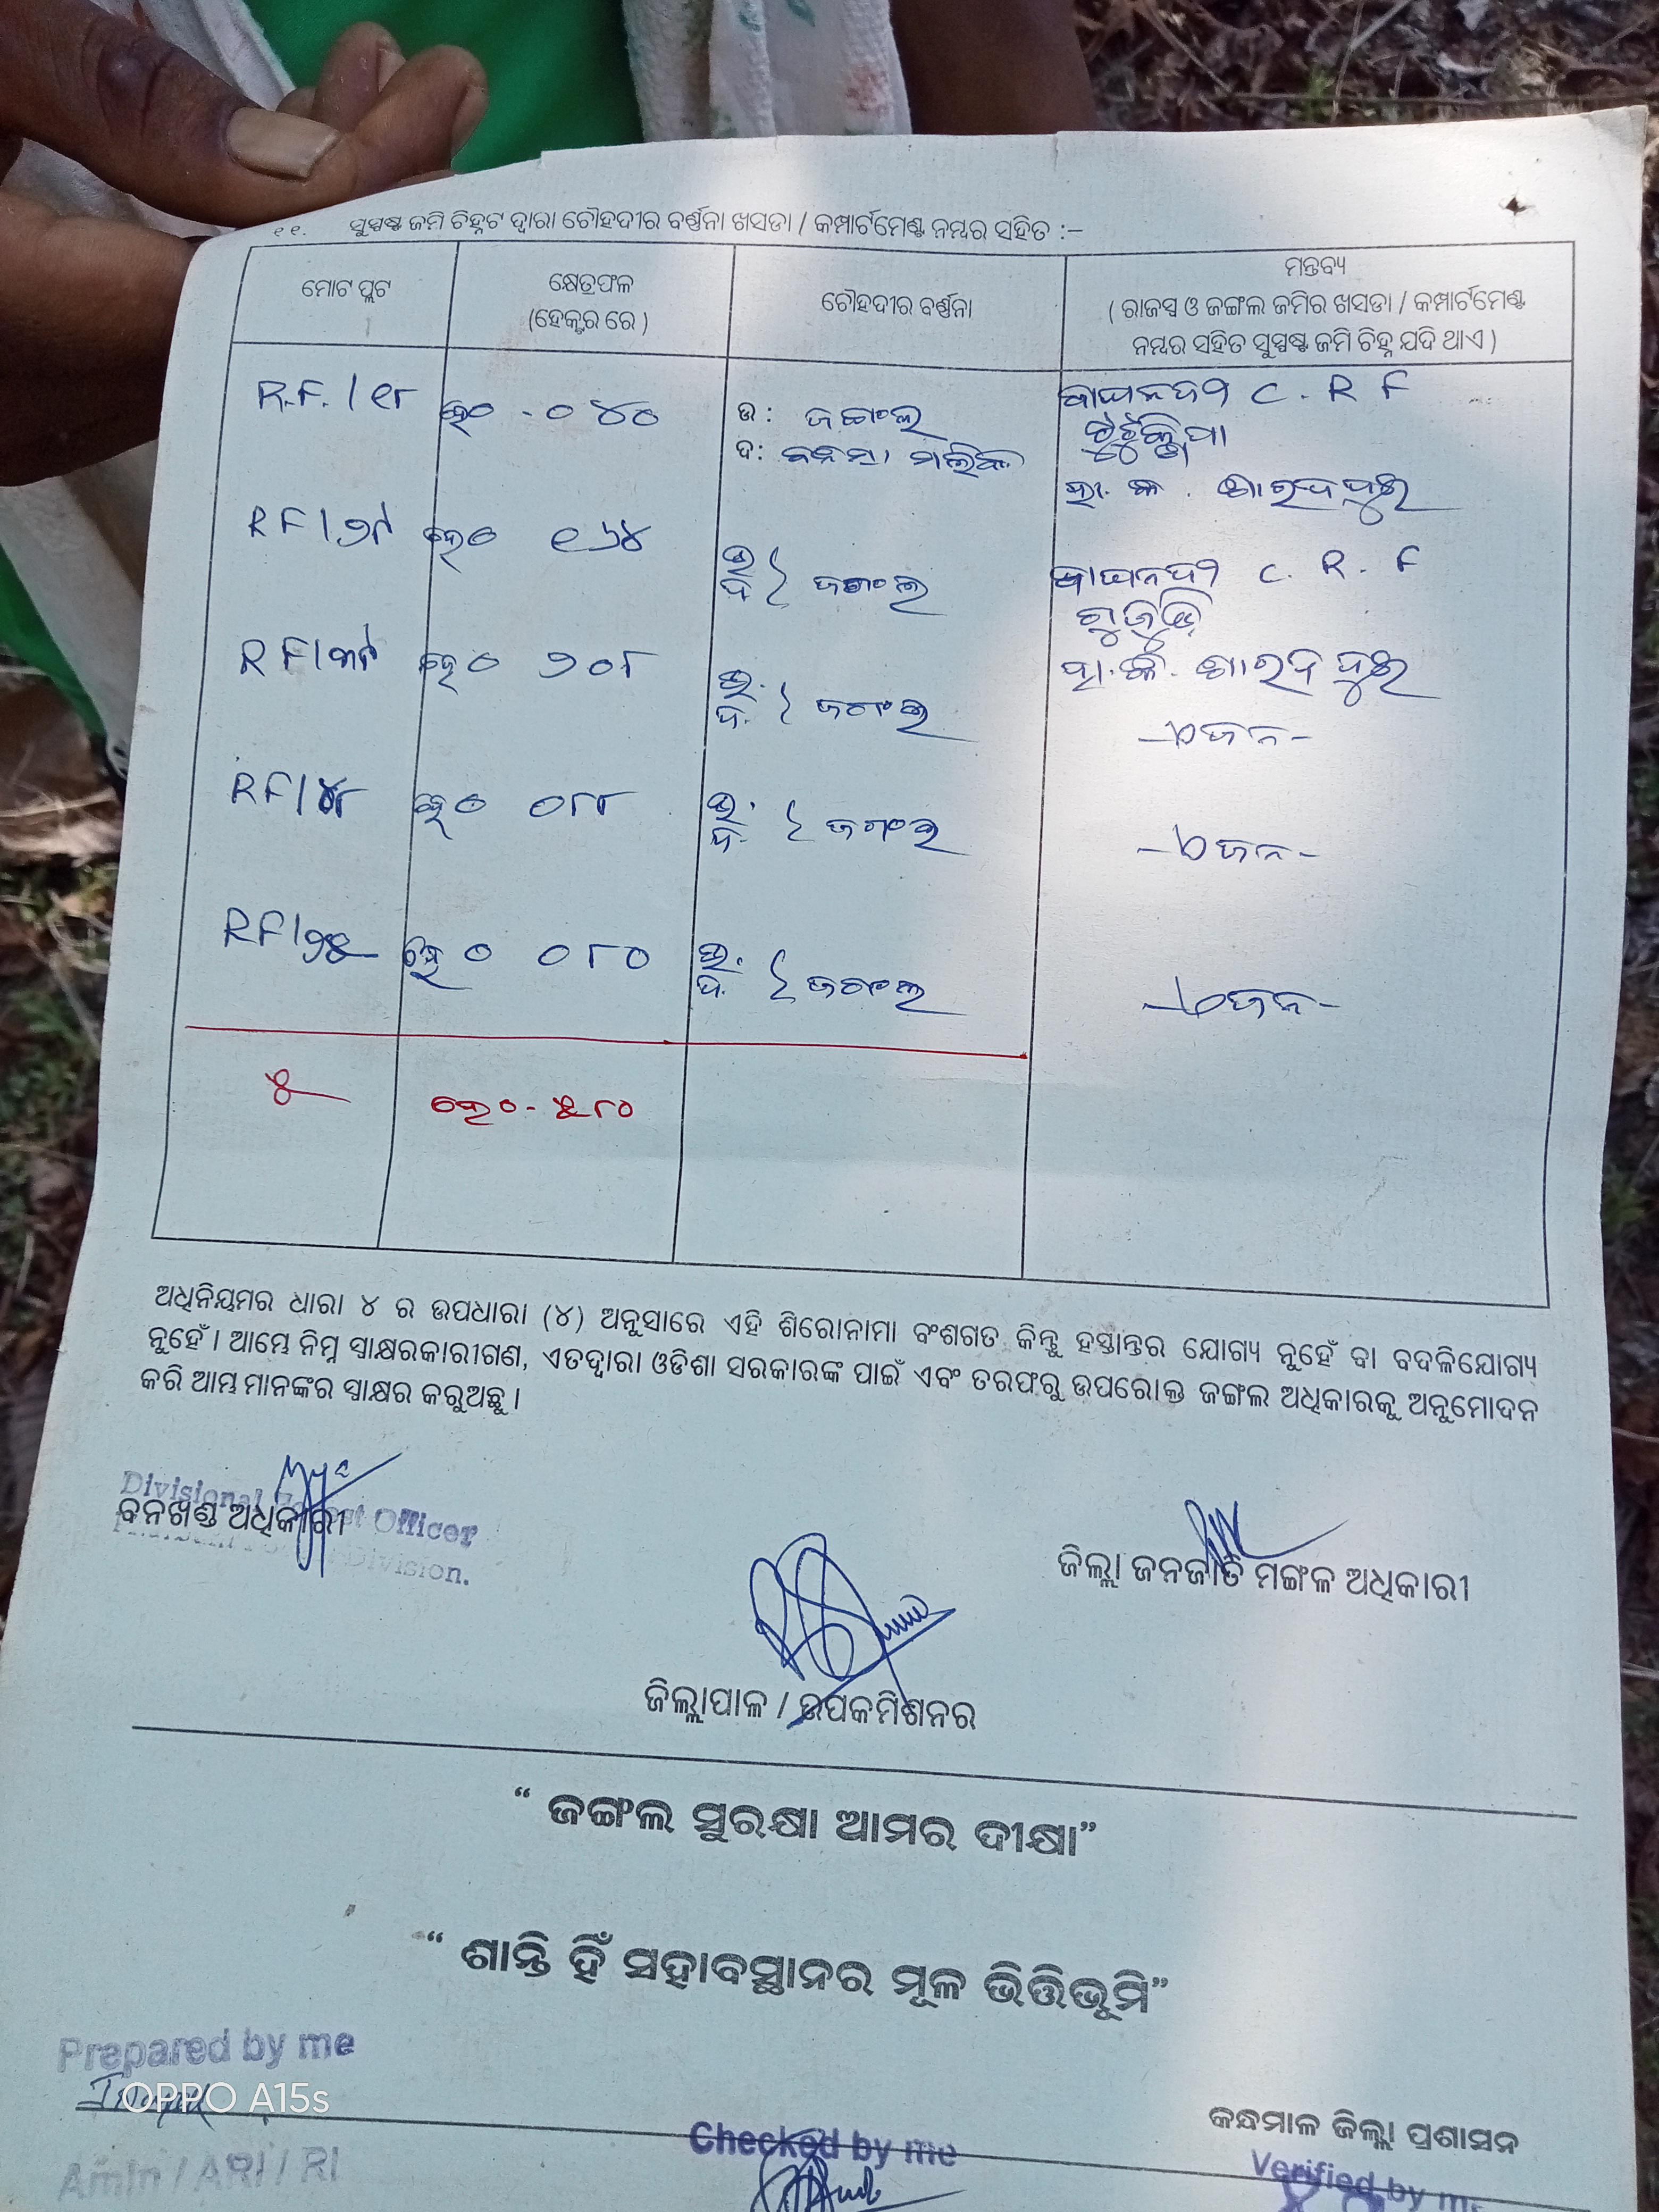 ୧୧. ସୁସ୍ପଷ୍ଟ ଜମି ଚିହ୍ନଟ ଦ୍ୱାରା ଚୌହଦୀର ବର୍ଣ୍ଣନା ଖସଡା / କମ୍ପାର୍ଟମେଣ୍ଟ ନମ୍ବର ସହିତ :–
ମୋଟ ପ୍ଲଟ
କ୍ଷେତ୍ରଫଳ
(ହେକ୍ଟର ରେ )
ଚୌହଦୀର ବର୍ଣ୍ଣନା
ମନ୍ତବ୍ୟ
( ରାଜସ୍ୱ ଓ ଜଙ୍ଗଲ ଜମିର ଖସଡା / କମ୍ପାର୍ଟମେଣ୍ଟ
ନମ୍ବର ସହିତ ସୁସ୍ପଷ୍ଟ ଜମି ଚିହ୍ନ ଯଦି ଥାଏ )
R.F. / ୧୮ ହେ ୦ - ୦୪୦ ଉ : ଜଙ୍ଗଲ C. R F
ଦ : ମଲିକ
RF / ହେ ୦ ୧୬୪ ଉ ଦ } ଜଙ୍ଗଲ C. R. F
RF / ହେ ୦ ୨୦୮ ଉ. ଦ. } ଜଙ୍ଗଲ
–ଏଜନ–
RF / ହେ ୦ ୦୮୮ ଉ. ଦ. } ଜଙ୍ଗଲ –ଏଜନ–
RF / ୨୫ ହେ ୦ ୦୮୦ ଉ. ଦ. } ଜଙ୍ଗଲ –ଏଜନ–
୫ ହେ ୦ - ୫୮୦
ଅଧିନିୟମର ଧାରା ୪ ର ଉପଧାରା (୪) ଅନୁସାରେ ଏହି ଶିରୋନାମା ବଂଶଗତ କିନ୍ତୁ ହସ୍ତାନ୍ତର ଯୋଗ୍ୟ ନୁହେଁ ବା ବଦଳିଯୋଗ୍ୟ
ନୁହେଁ । ଆମ୍ଭେ ନିମ୍ନ ସ୍ୱାକ୍ଷରକାରୀଗଣ, ଏତଦ୍ୱାରା ଓଡିଶା ସରକାରଙ୍କ ପାଇଁ ଏବଂ ତରଫରୁ ଉପରୋକ୍ତ ଜଙ୍ଗଲ ଅଧିକାରକୁ ଅନୁମୋଦନ
କରି ଆମ୍ଭ ମାନଙ୍କର ସ୍ୱାକ୍ଷର କରୁଅଛୁ ।
Divisional Forest Officer
ବନଖଣ୍ଡ ଅଧିକାରୀ
Division.
ଜିଲ୍ଲା ଜନଜାତି ମଙ୍ଗଳ ଅଧିକାରୀ
ଜିଲ୍ଲାପାଳ / ଉପକମିଶନର
“ ଜଙ୍ଗଲ ସୁରକ୍ଷା ଆମର ଦୀକ୍ଷା”
“ ଶାନ୍ତି ହିଁ ସହାବସ୍ଥାନର ମୂଳ ଭିତ୍ତିଭୂମି”
Prepared by me
OPPO A15s
Amin / ARI / RI
Checked by me
କନ୍ଧମାଳ ଜିଲ୍ଲା ପ୍ରଶାସନ
Verified by me